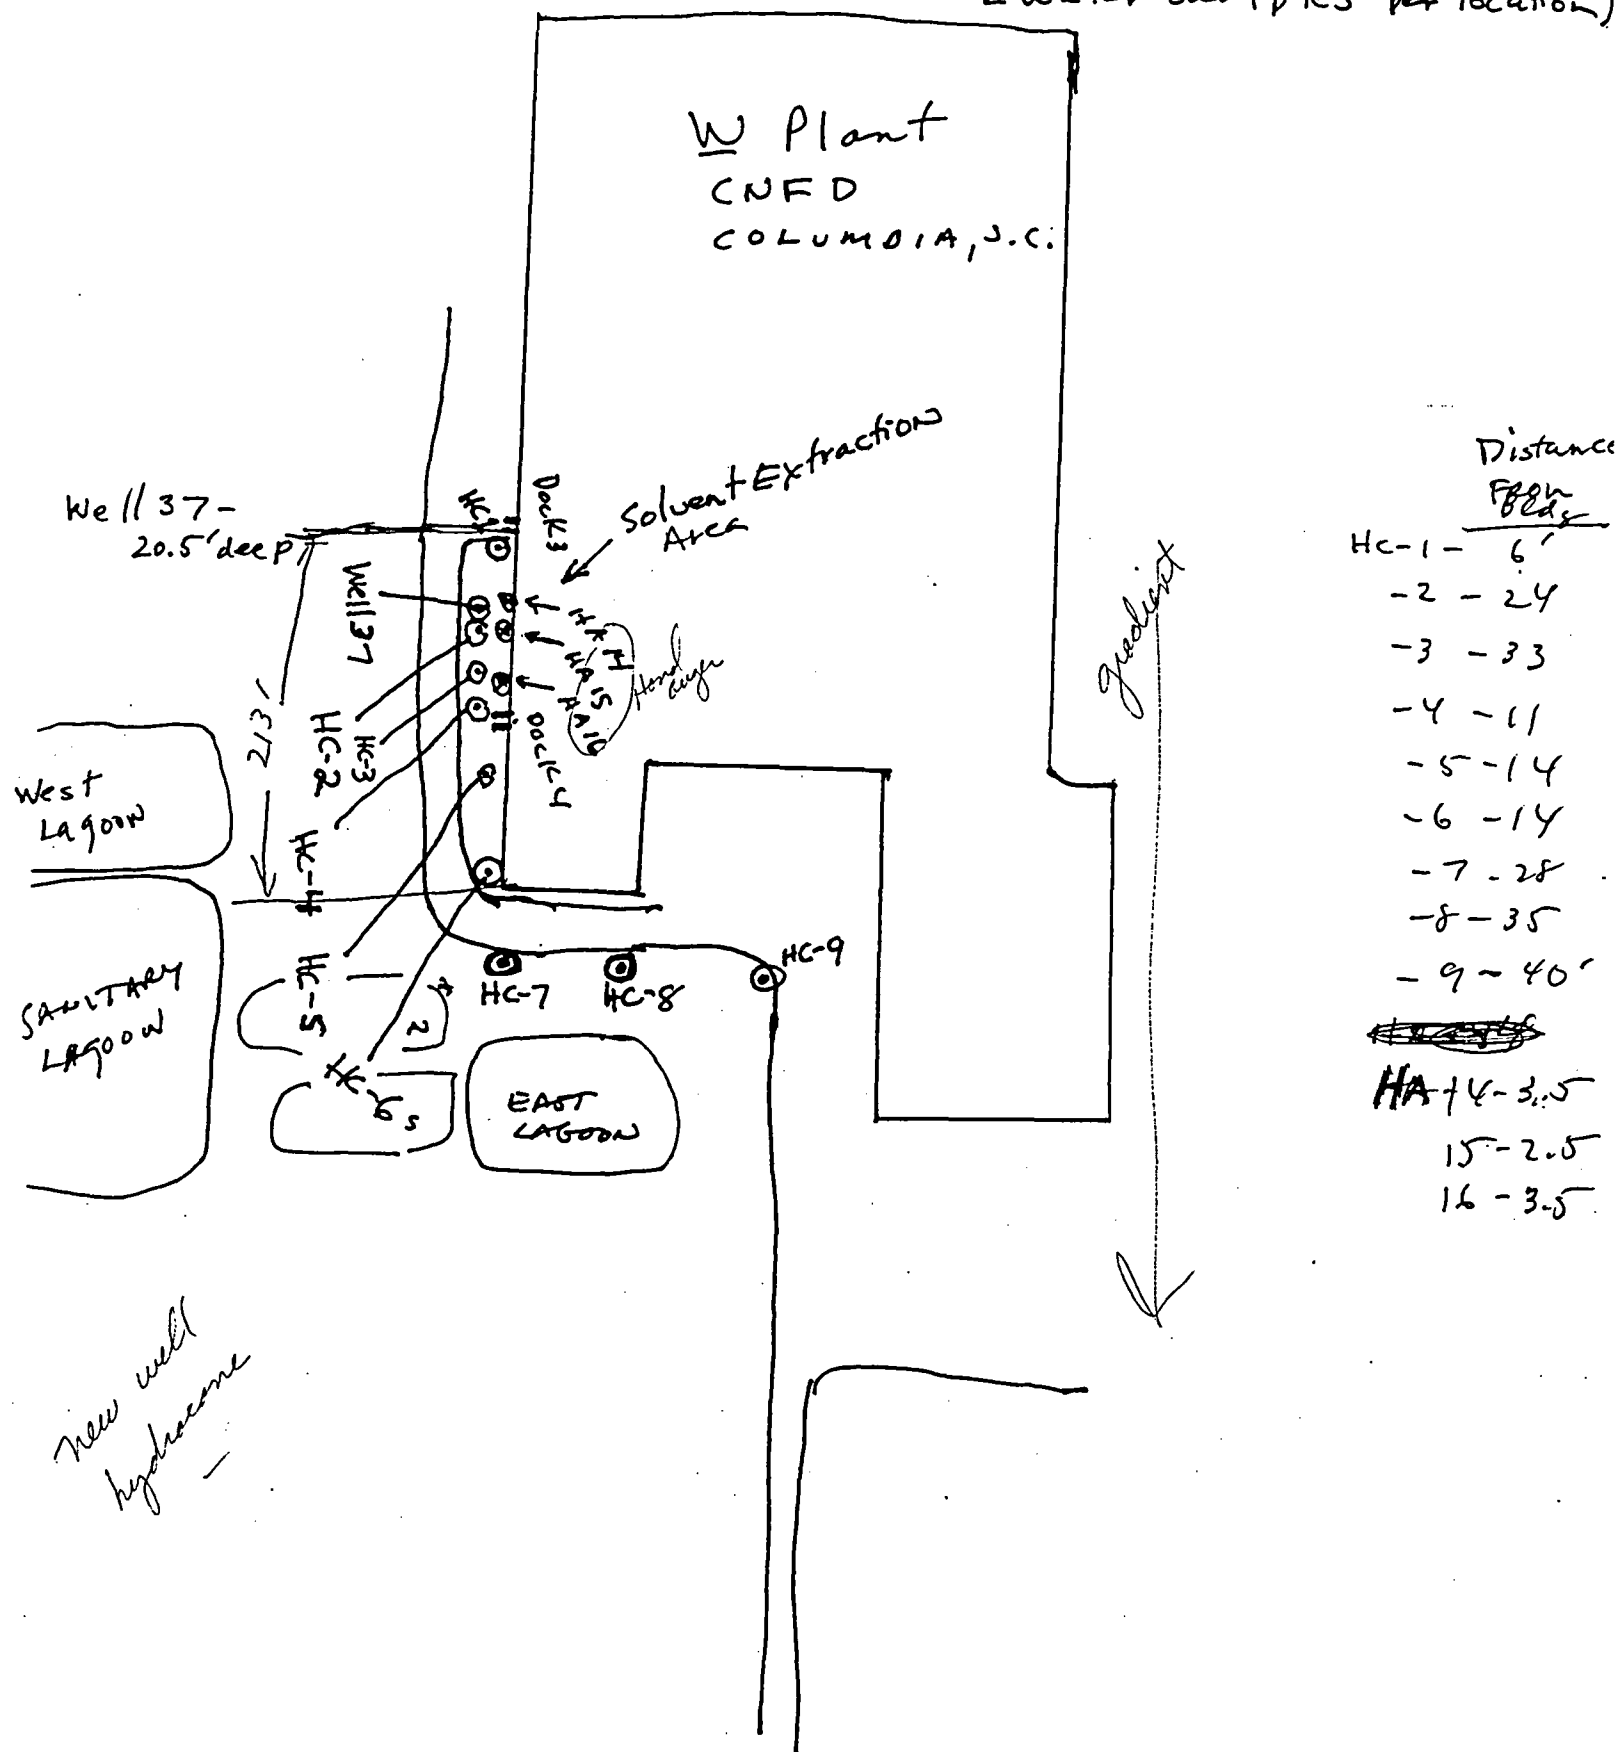 water samples per location)
W Plant
CNFD
COLUMBIA, S.C.
Solvent Extraction
Area
Well 37-
20.5' deep
HC1
Dock3
Well 37
HA 14
HA 15
HA 16
Hand
auger
HC-2
HC-3
Dock 4
213'
HC-4
HC-5
HC-6
West
Lagoon
SANITARY
LAGOON
2
s
HC-7
HC-8
HC-9
EAST
LAGOON
gradient
Distance
From
Bldg
HC-1 - 6'
-2 - 24
-3 - 33
-4 - 11
-5 - 14
-6 - 14
-7 - 28
-8 - 35
-9 - 40'
HA 14 - 3.5
15 - 2.5
16 - 3.5
New well